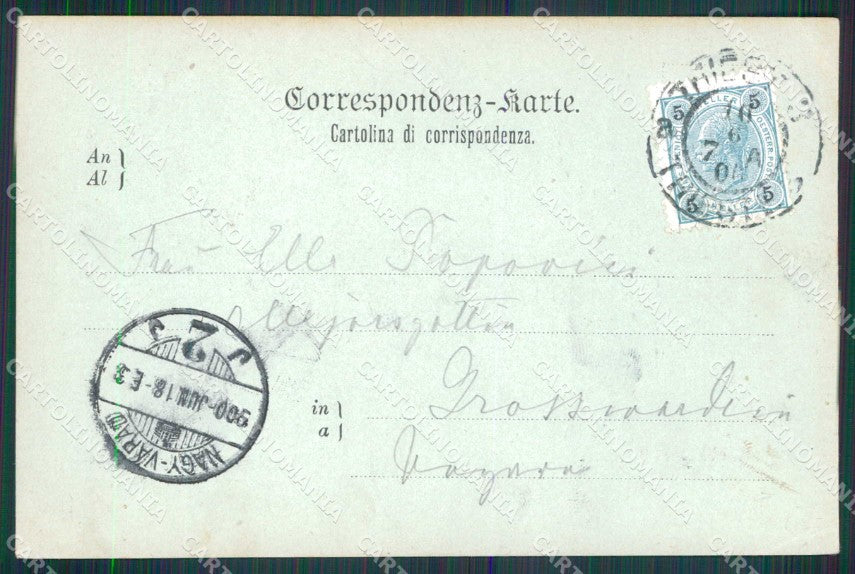 Correspondenz-Karte.
Cartolina di corrispondenza.
An
Al
5 5
5 5
16
6
7 A
00
TRIESTE
Frau Elle Popovici
Majorsgattin
in
a
Grosswardein
Ungarn
2
900 JUN. 18 - E. 3
NAGY-VÁRAD
CARTOLINOMANIA